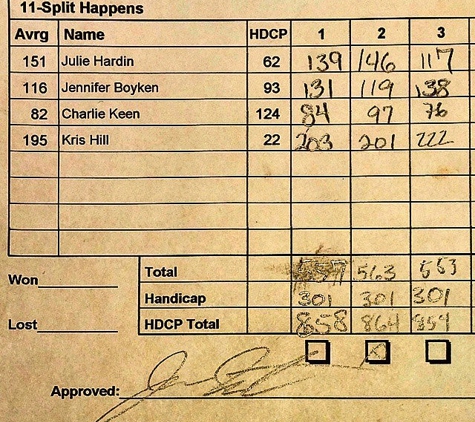 11-Split Happens
Avrg Name HDCP 1 2 3
151 Julie Hardin 62 139 146 117
116 Jennifer Boyken 93 131 119 138
82 Charlie Keen 124 84 97 76
195 Kris Hill 22 203 201 222
Won
Total 563 553
Handicap 301 301 301
Lost
HDCP Total 858 864 854
Approved: